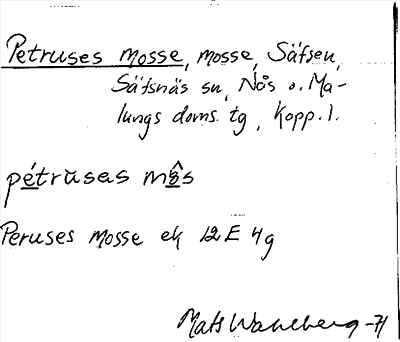 Petruses mosse, mosse, Säfsen,
Säfsnäs sn, Nås o. Ma-
lungs doms. tg, Kopp. l.
pétrŭsas môs
Peruses mosse ek 12E 4g
Mats Wahlberg -71